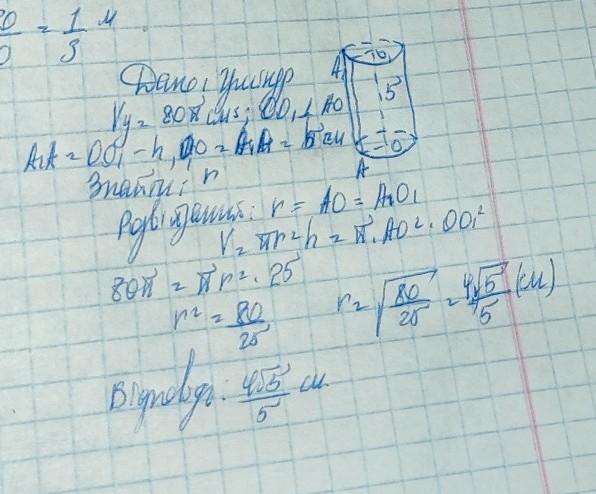 80/0 = 1/3 м
Дано: циліндр
Vц = 80π см³; OO₁ ⊥ AO
A₁A = OO₁ = h, OO₁ = A₁A = 5 см
Знайти: r
Розв'язання: r = AO = A₁O₁
V = πr²h = π · AO² · OO₁²
80π = πr² · 25
r² = 80/25
r = √(80/25) = 4√5/5 (см)
Відповідь: 4√5/5 см.
A₁ O₁
5
O
A